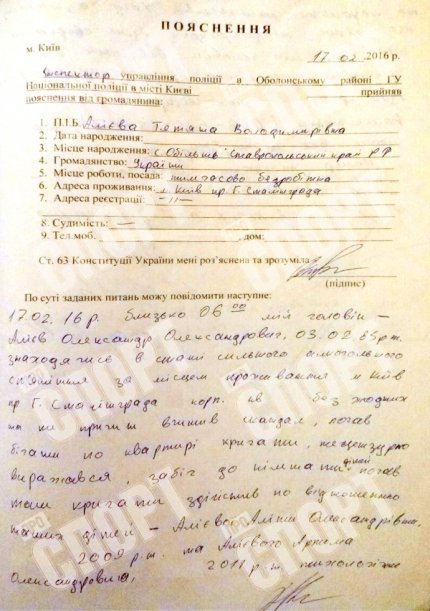 ПОЯСНЕННЯ
м. Київ
17 02 2016 р.
Інспектор управління поліції в Оболонському районі ГУ
Національної поліції в місті Києві прийняв
пояснення від громадянина:
1. П.І.Б. Алієва Тетяна Володимирівна
2. Дата народження:
3. Місце народження: с. Обільне Ставропольський край РФ
4. Громадянство: України
5. Місце роботи, посада: тимчасово безробітна
6. Адреса проживання: м. Київ пр. Г. Сталінграда
7. Адреса реєстрації: -//-
8. Судимість: —
9. Тел.моб. , дом:
Ст. 63 Конституції України мені роз'яснена та зрозуміла
(підпис)
По суті заданих питань можу повідомити наступне:
17.02.16 р. близько 06 00 мій чоловік –
Алієв Олександр Олександрович, 03.02.85 р.н.
знаходячись в стані сильного алкогольного
сп'яніння за місцем проживання м. Київ
пр Г. Сталінграда корп. кв без жодних
на те причин вчинив скандал, почав
бігати по квартирі кричати, нецензурно
виражався, забіг до кімнати дітей почав
там кричати здійснив по відношенню
наших дітей – Алієвої Аліни Олександрівни,
2009 р.н. та Алієвого Артема
Олександровича, 2011 р.н. психологічне
ПРО СПОРТ